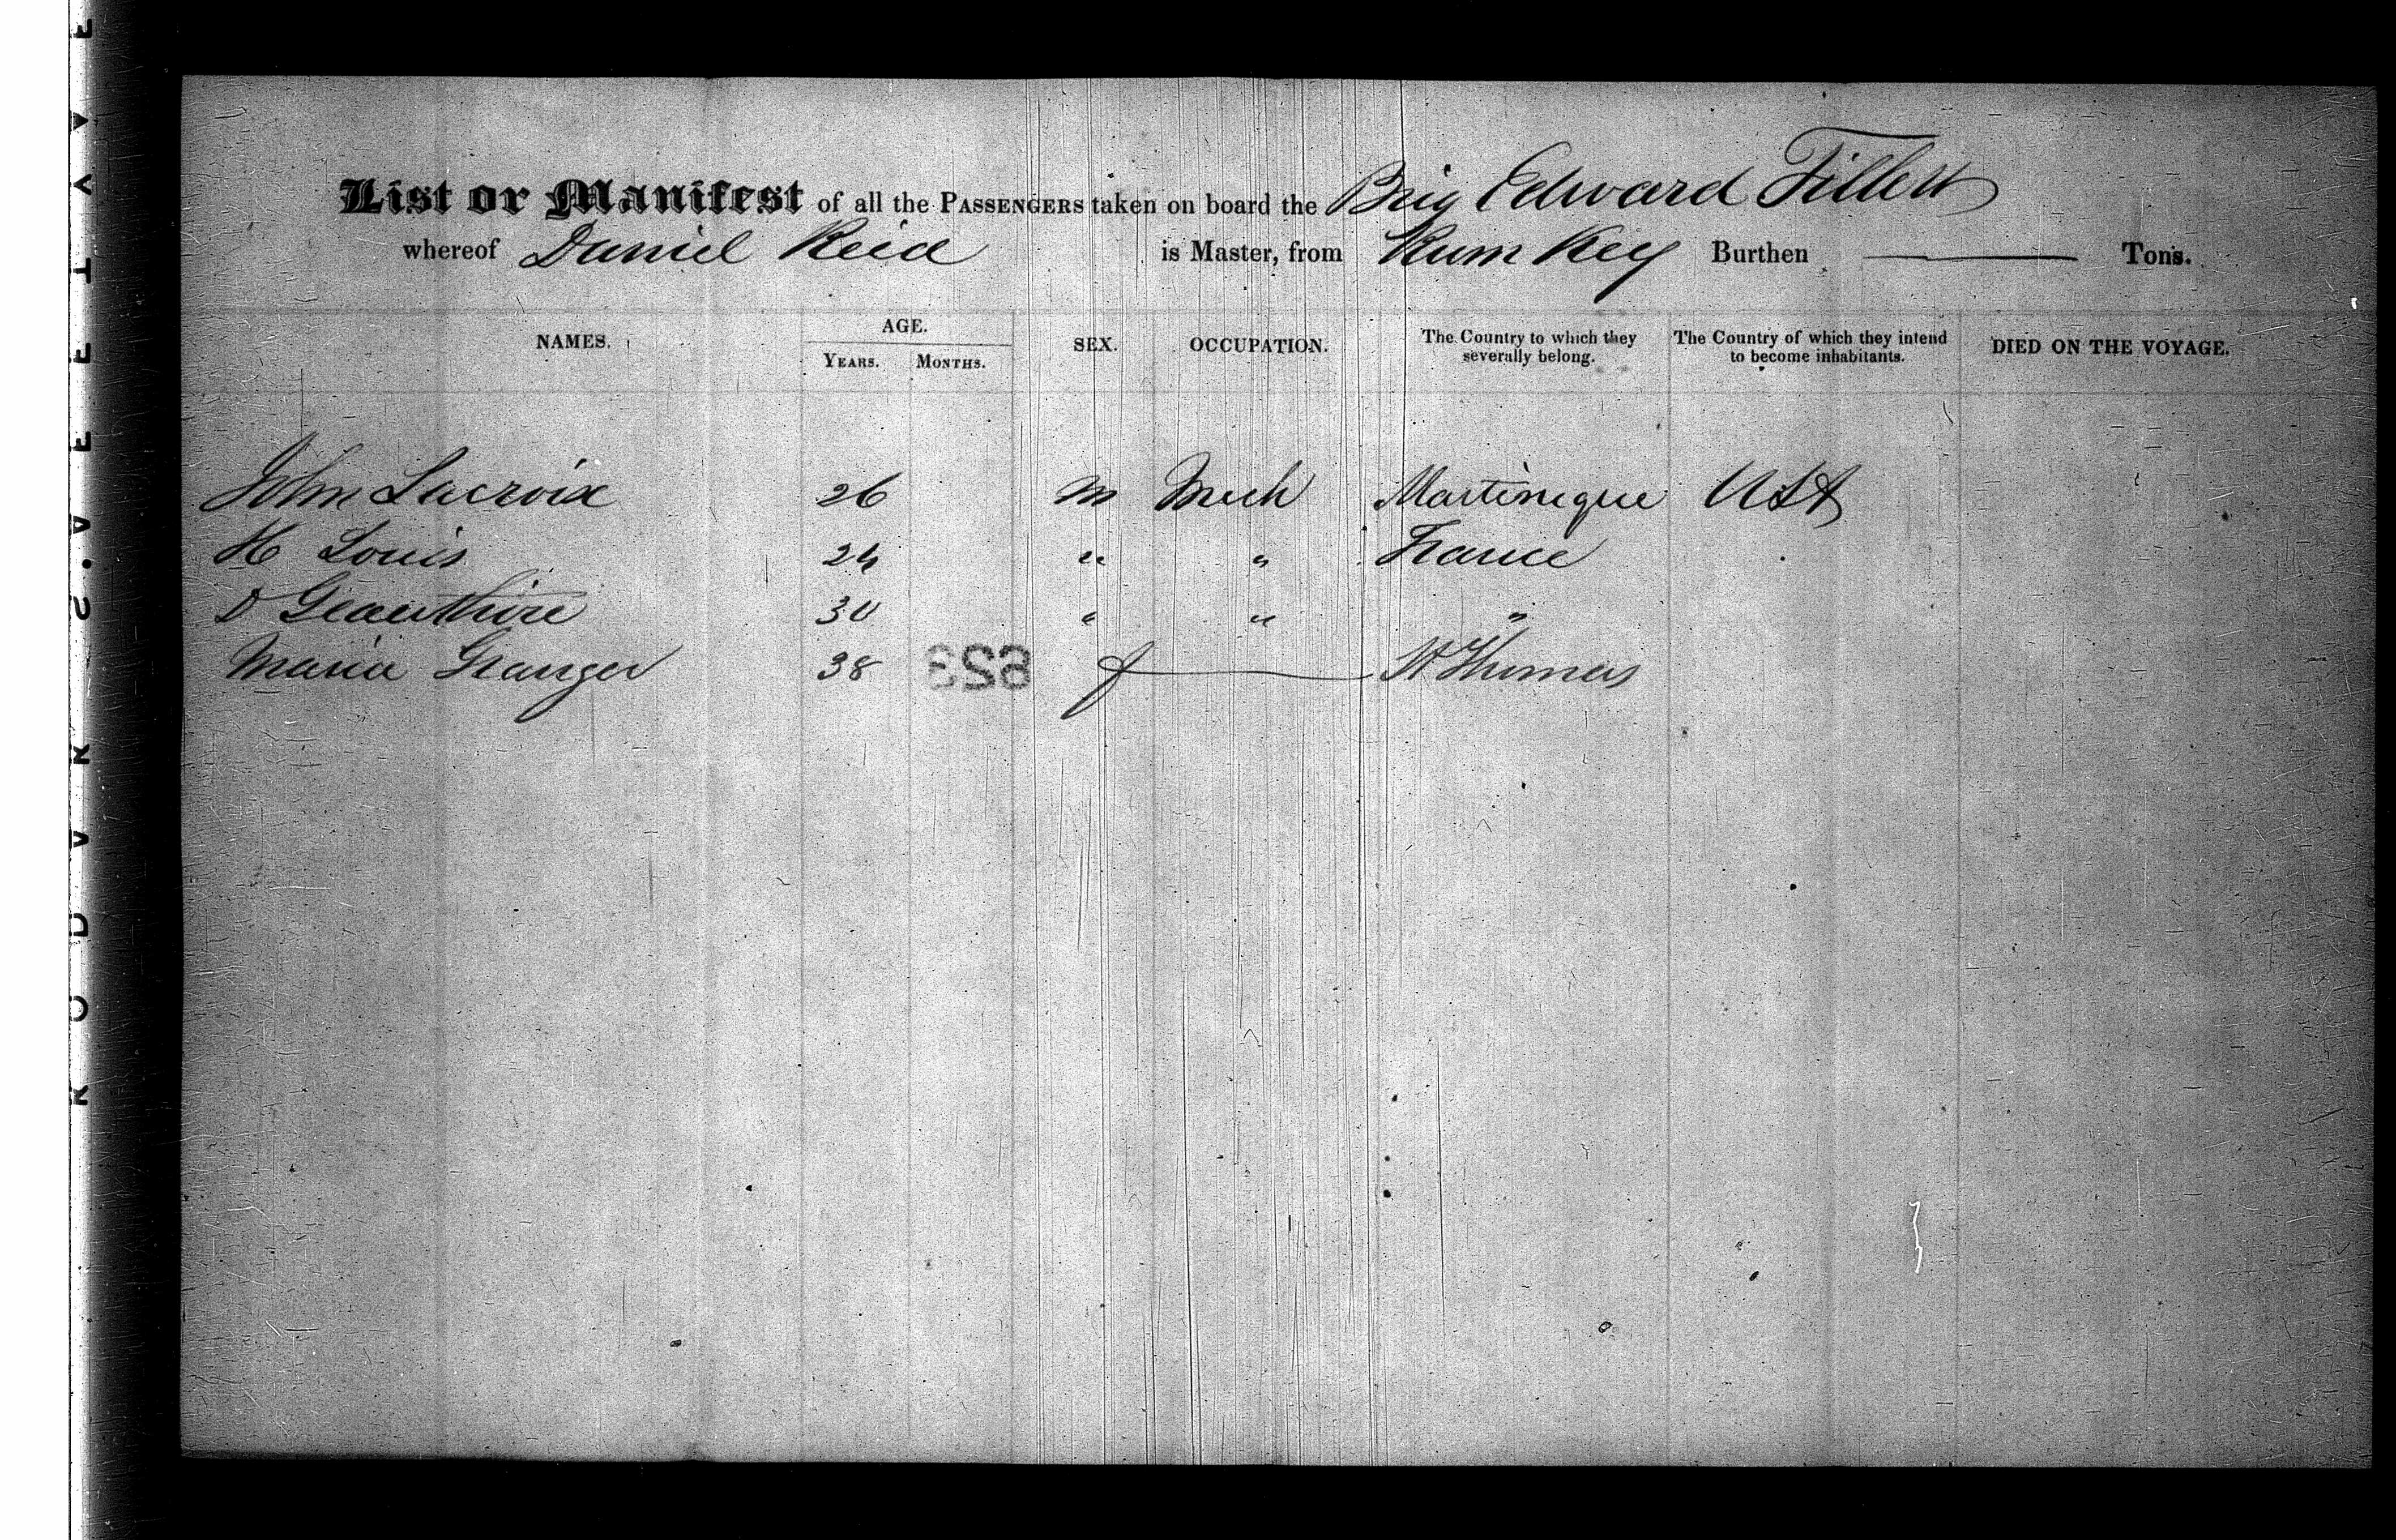 List or Manifest of all the PASSENGERS taken on board the Brig Edward Tillett
whereof Daniel Reid is Master, from Rum Key Burthen —— Tons.
NAMES. AGE. SEX. OCCUPATION. The Country to which they severally belong. The Country of which they intend to become inhabitants. DIED ON THE VOYAGE.
YEARS. MONTHS.
John Lacroix 26 m Mech Martinique USA
H Louis 24 " " France
D 30 " " "
Maria Granger 38 f —— St Thomas
623